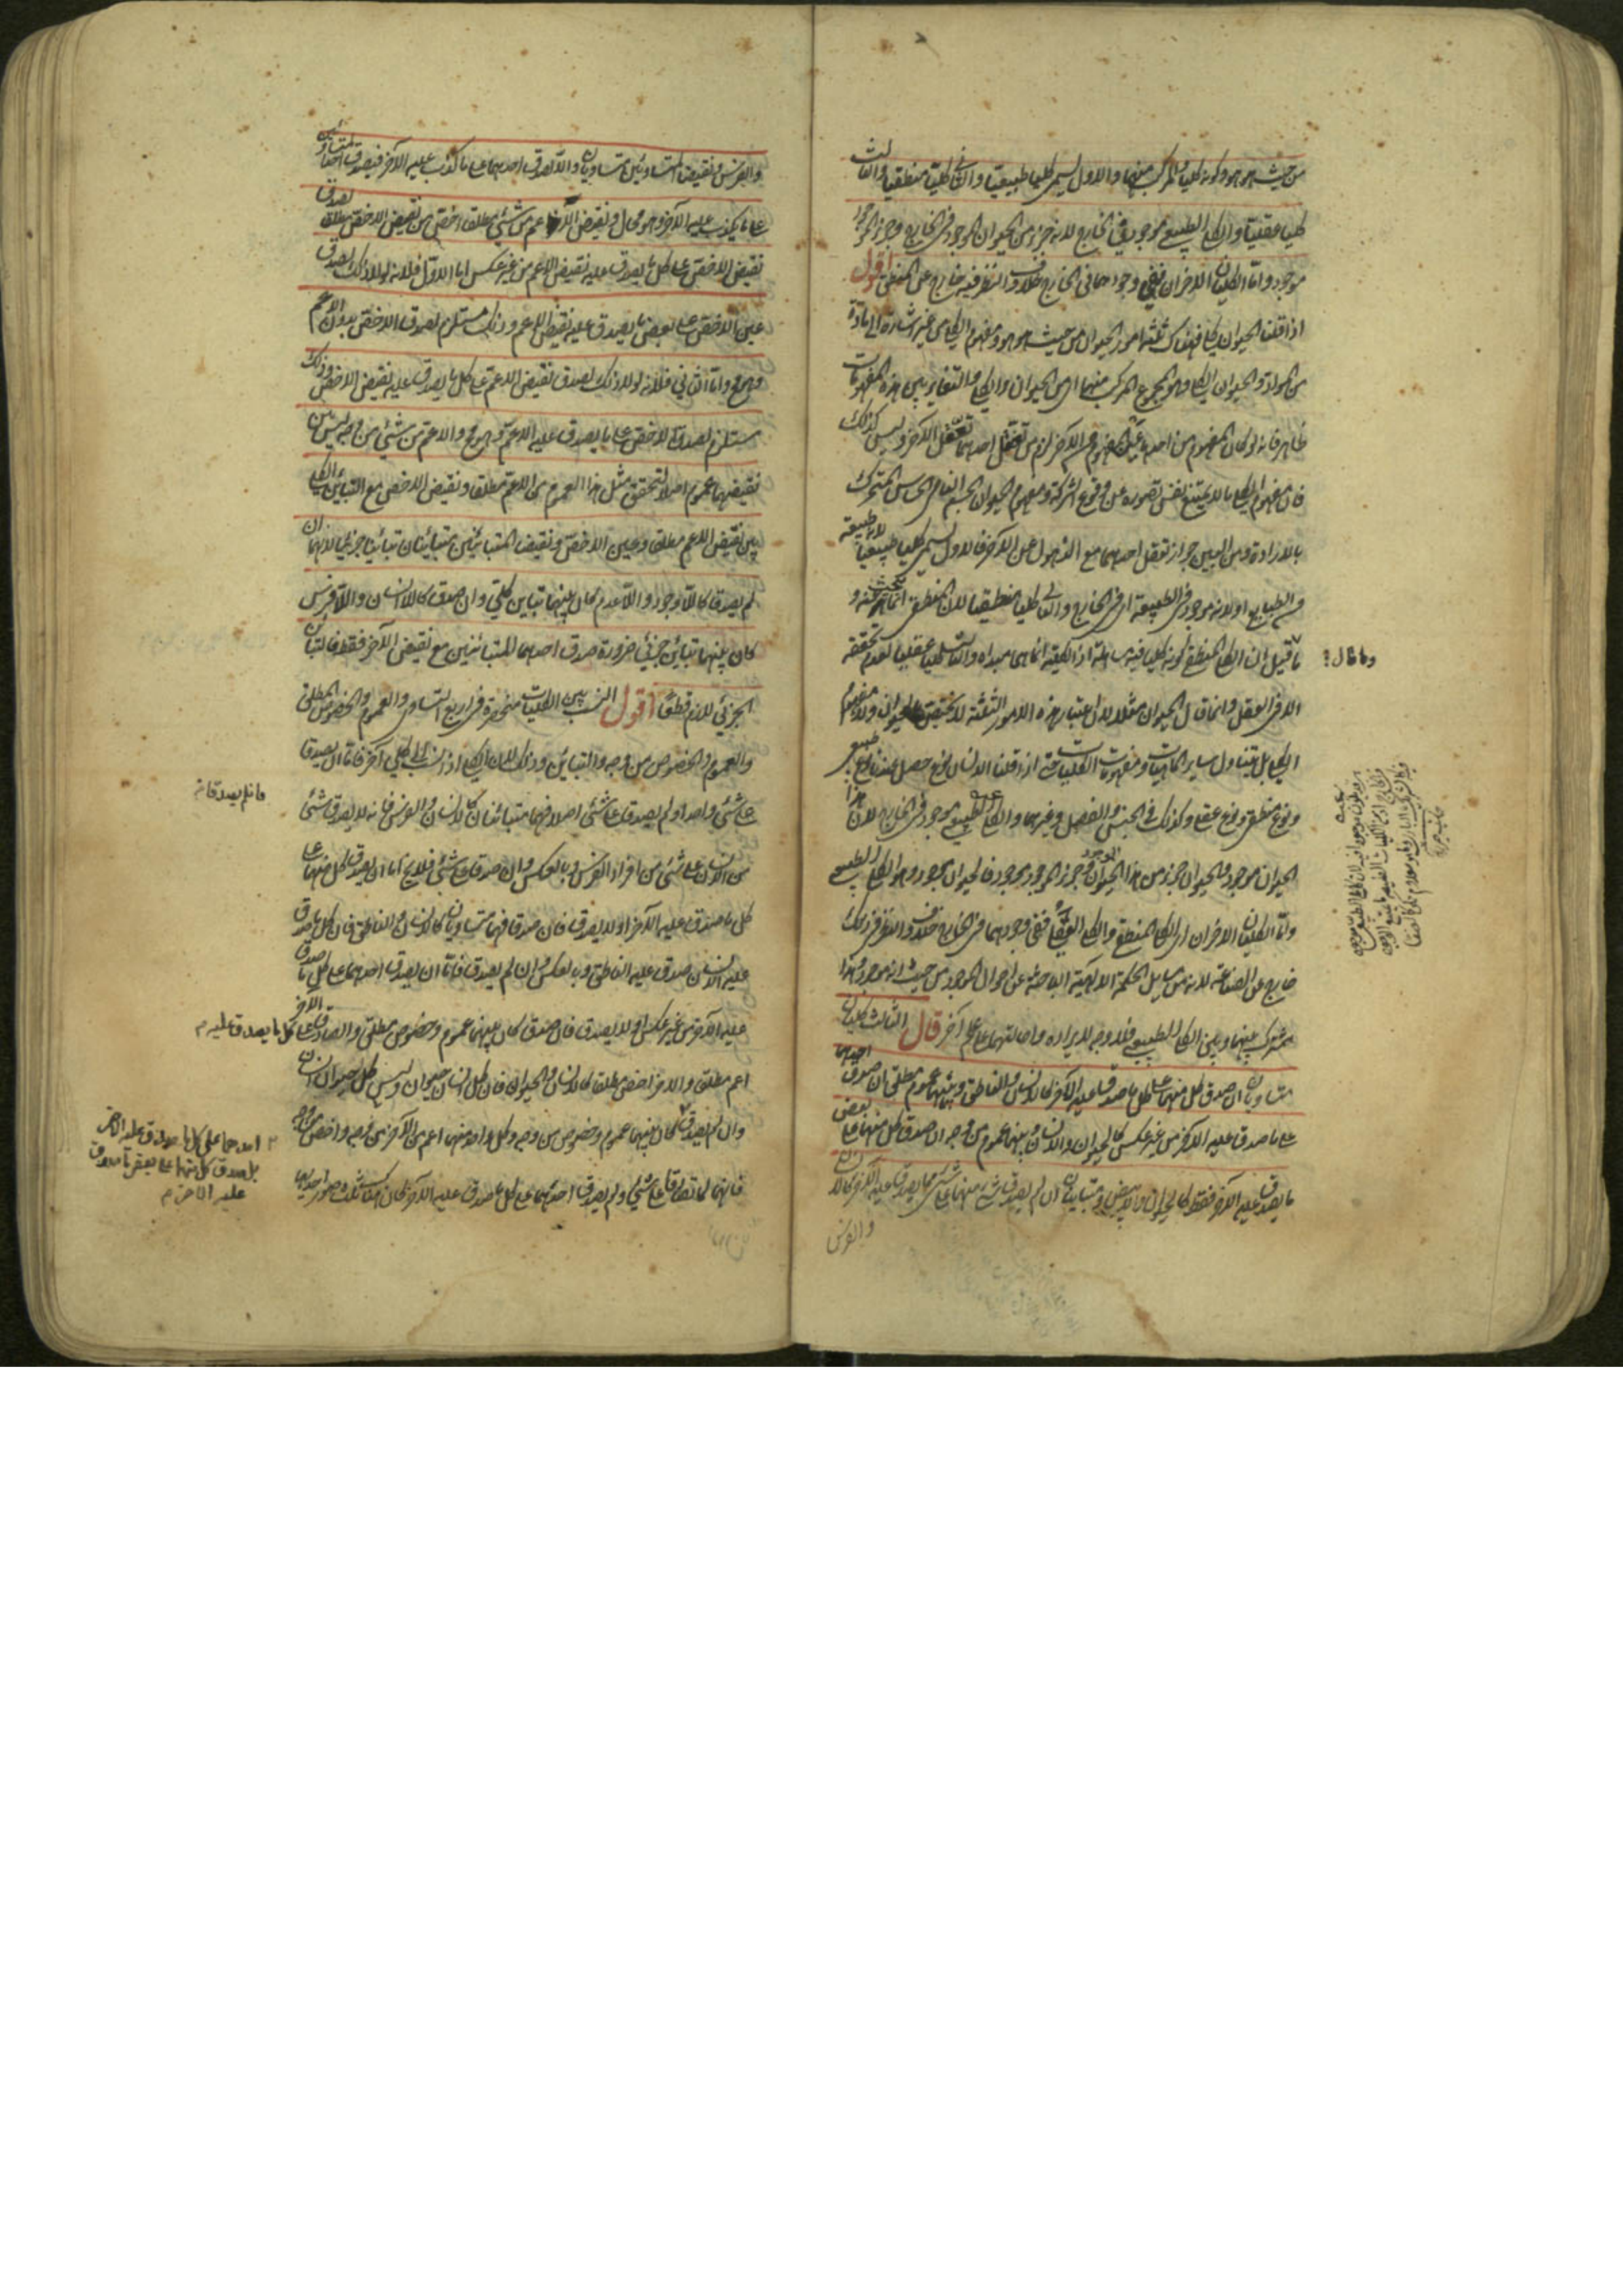 من حيث هو هو وكونه كليا والمركب منهما والاول يسمى كليا طبيعيا والثانى كليا منطقيا والثالث
كليا عقليا والكلى الطبيعى موجود فى الخارج لانه جزء من الحيوان الموجود فى الخارج وجزء الموجود
موجود واما الكليان الاخران ففى وجودهما فى الخارج خلاف والنظر فيه خارج عن المنطق اقول
اذا قلنا الحيوان كلى فهناك ثلثة امور الحيوان من حيث هو هو ومفهوم الكلى من غير اشارة الى مادة
من المواد والحيوان الكلى وهو المجموع المركب منهما اى من الحيوان والكلى والتغاير بين هذه المفهومات
ظاهر فانه لو كان المفهوم من احدهما عين المفهوم من الآخر لزم من تعقل احدهما تعقل الآخر وليس كذلك
فان مفهوم الكلى ما لا يمتنع نفس تصوره عن وقوع الشركة ومفهوم الحيوان الجسم النامى الحساس المتحرك
بالارادة ومن البين جواز تعقل احدهما مع الذهول عن الآخر فالاول يسمى كليا طبيعيا لانه طبيعة
من الطبايع او لانه موجود فى الطبيعة اى فى الخارج والثانى كليا منطقيا لان المنطقى انما يبحث عنه و
ما قيل ان الكلى المنطقى كونه كليا فيه مساهلة اذ الكلية انما هى مبدأه والثالث كليا عقليا لعدم تحققه
وما قال
الا فى العقل وانما قال الحيوان مثلا لان اعتبار هذه الامور الثلثة لا يختص بالحيوان ولا بمفهوم
الكلى بل يتناول ساير الماهيات ومفهومات الكليات حتى اذا قلنا الانسان نوع حصل عندنا نوع طبيعى
ونوع منطقى ونوع عقلى وكذلك فى الجنس والفصل وغيرهما والكلى الطبيعى موجود فى الخارج لان هذا
الحيوان موجود والحيوان جزء من هذا الحيوان الموجود وجزء الموجود موجود فالحيوان موجود وهو الكلى الطبيعى
واما الكليان الاخران اى الكلى المنطقى والكلى العقلى ففى وجودهما فى الخارج خلاف والنظر فى ذلك
خارج عن الصناعة لانه من مسايل الحكمة الالهية الباحثة عن احوال الموجود من حيث انه موجود وهذا
مشترك بينهما وبين الكلى الطبيعى فلا وجه لايراده واحالتهما على علم آخر قال الثالث الكليان
متساويان ان صدق كل منهما على كل ما صدق عليه الآخر كالانسان والناطق وبينهما عموم مطلق ان صدق احدهما
على ما صدق عليه الآخر من غير عكس كالحيوان والانسان وبينهما عموم من وجه ان صدق كل منهما على بعض
ما يصدق عليه الآخر فقط كالحيوان والابيض ومتباينان ان لم يصدق شئ منهما على شئ مما يصدق عليه الآخر كالانسان
والفرس
والفرس ونقيضا المتساويين متساويان والا لصدق احدهما على ما كذب عليه الآخر فيصدق احد المتساويين
على ما يكذب عليه الآخر وهو محال ونقيض الاعم من شئ مطلقا اخص من نقيض الاخص مطلقا لصدق
نقيض الاخص على كل ما يصدق عليه نقيض الاعم من غير عكس اما الاول فلانه لولا ذلك لصدق
عين الاخص على بعض ما يصدق عليه نقيض الاعم وذلك مستلزم لصدق الاخص بدون الاعم
وهو مح واما الثانى فلانه لولا ذلك لصدق نقيض الاعم على كل ما يصدق عليه نقيض الاخص وذلك
مستلزم لصدق الاخص على ما يصدق عليه الاعم وهو مح والاعم من شئ من وجه ليس بين
نقيضيهما عموم اصلا لتحقق مثل هذا العموم بين الاعم مطلقا ونقيض الاخص مع التباين الكلى
بين نقيض الاعم مطلقا وعين الاخص ونقيضا المتباينين متباينان تباينا جزئيا لانهما ان
لم يصدقا كاللاوجود واللاعدم كان بينهما تباين كلى وان صدقا كاللاانسان واللافرس
كان بينهما تباين جزئى ضرورة صدق احد المتباينين مع نقيض الآخر فقط فالتباين
الجزئى لازم قطعا اقول النسب بين الكليات منحصرة فى اربع التساوى والعموم والخصوص المطلق
والعموم والخصوص من وجه والتباين وذلك لان الكلى اذا نسب الى كلى آخر فاما ان يصدقا
على شئ واحد او لم يصدقا على شئ اصلا فهما متباينان كالانسان والفرس فانه لا يصدق شئ
فان لم يصدقا
من الانسان على شئ من افراد الفرس وبالعكس وان صدقا على شئ فلا يخ اما ان يصدق كل منهما على
كل ما صدق عليه الآخر او لا يصدق فان صدقا فهما متساويان كالانسان والناطق فان كل ما يصدق
عليه الانسان صدق عليه الناطق وبالعكس وان لم يصدق فاما ان يصدق احدهما على كل ما صدق
عليه الآخر من غير عكس او لا يصدق فان صدق كان بينهما عموم وخصوص مطلق والصادق على كل ما يصدق عليه الاخر
اعم مطلق والاخر اخص مطلقا كالانسان والحيوان فان كل انسان حيوان وليس كل حيوان انسان
وان لم يصدق كان بينهما عموم وخصوص من وجه وكل واحد منهما اعم من الآخر من وجه واخص من وجه
احدهما على كل ما صدق عليه الاخر
بل صدق كل منهما على بعض ما صدق
عليه الاخر م
فانهما لما تصادقا على شئ ولم يصدق احدهما على كل ما صدق عليه الآخر كان هناك ثلث صور احديها